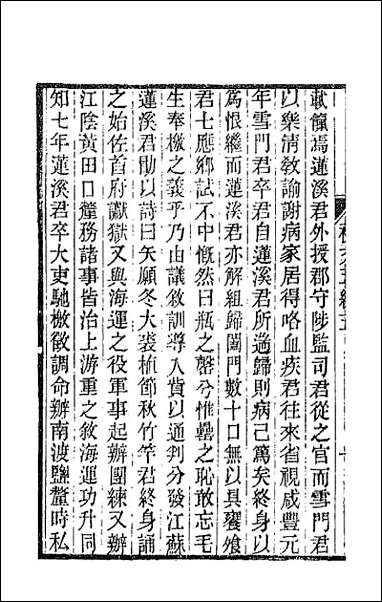 歃饟焉蓮溪君外授郡守陟監司君從之官而雪門君
以樂清敎諭謝病家居得咯血疾君往來省視咸豐元
年雪門君卒君自蓮溪君所遄歸則病已篤矣終身以
爲恨繼而蓮溪君亦解組歸闔門數十口無以具饔飧
君七應鄉試不中慨然曰瓶之罄兮惟罍之恥敢忘毛
生奉檄之義乎乃由議敘訓導入貲以通判分發江蘇
蓮溪君勖以詩曰矢願冬大裘植節秋竹竿君終身誦
之始佐首府讞獄又與海運之役軍事起辦團練又辦
江陰黃田口釐務諸事皆治上游重之敘海運功升同
知七年蓮溪君卒大吏馳檄敦調命辦南渡鹽釐時私